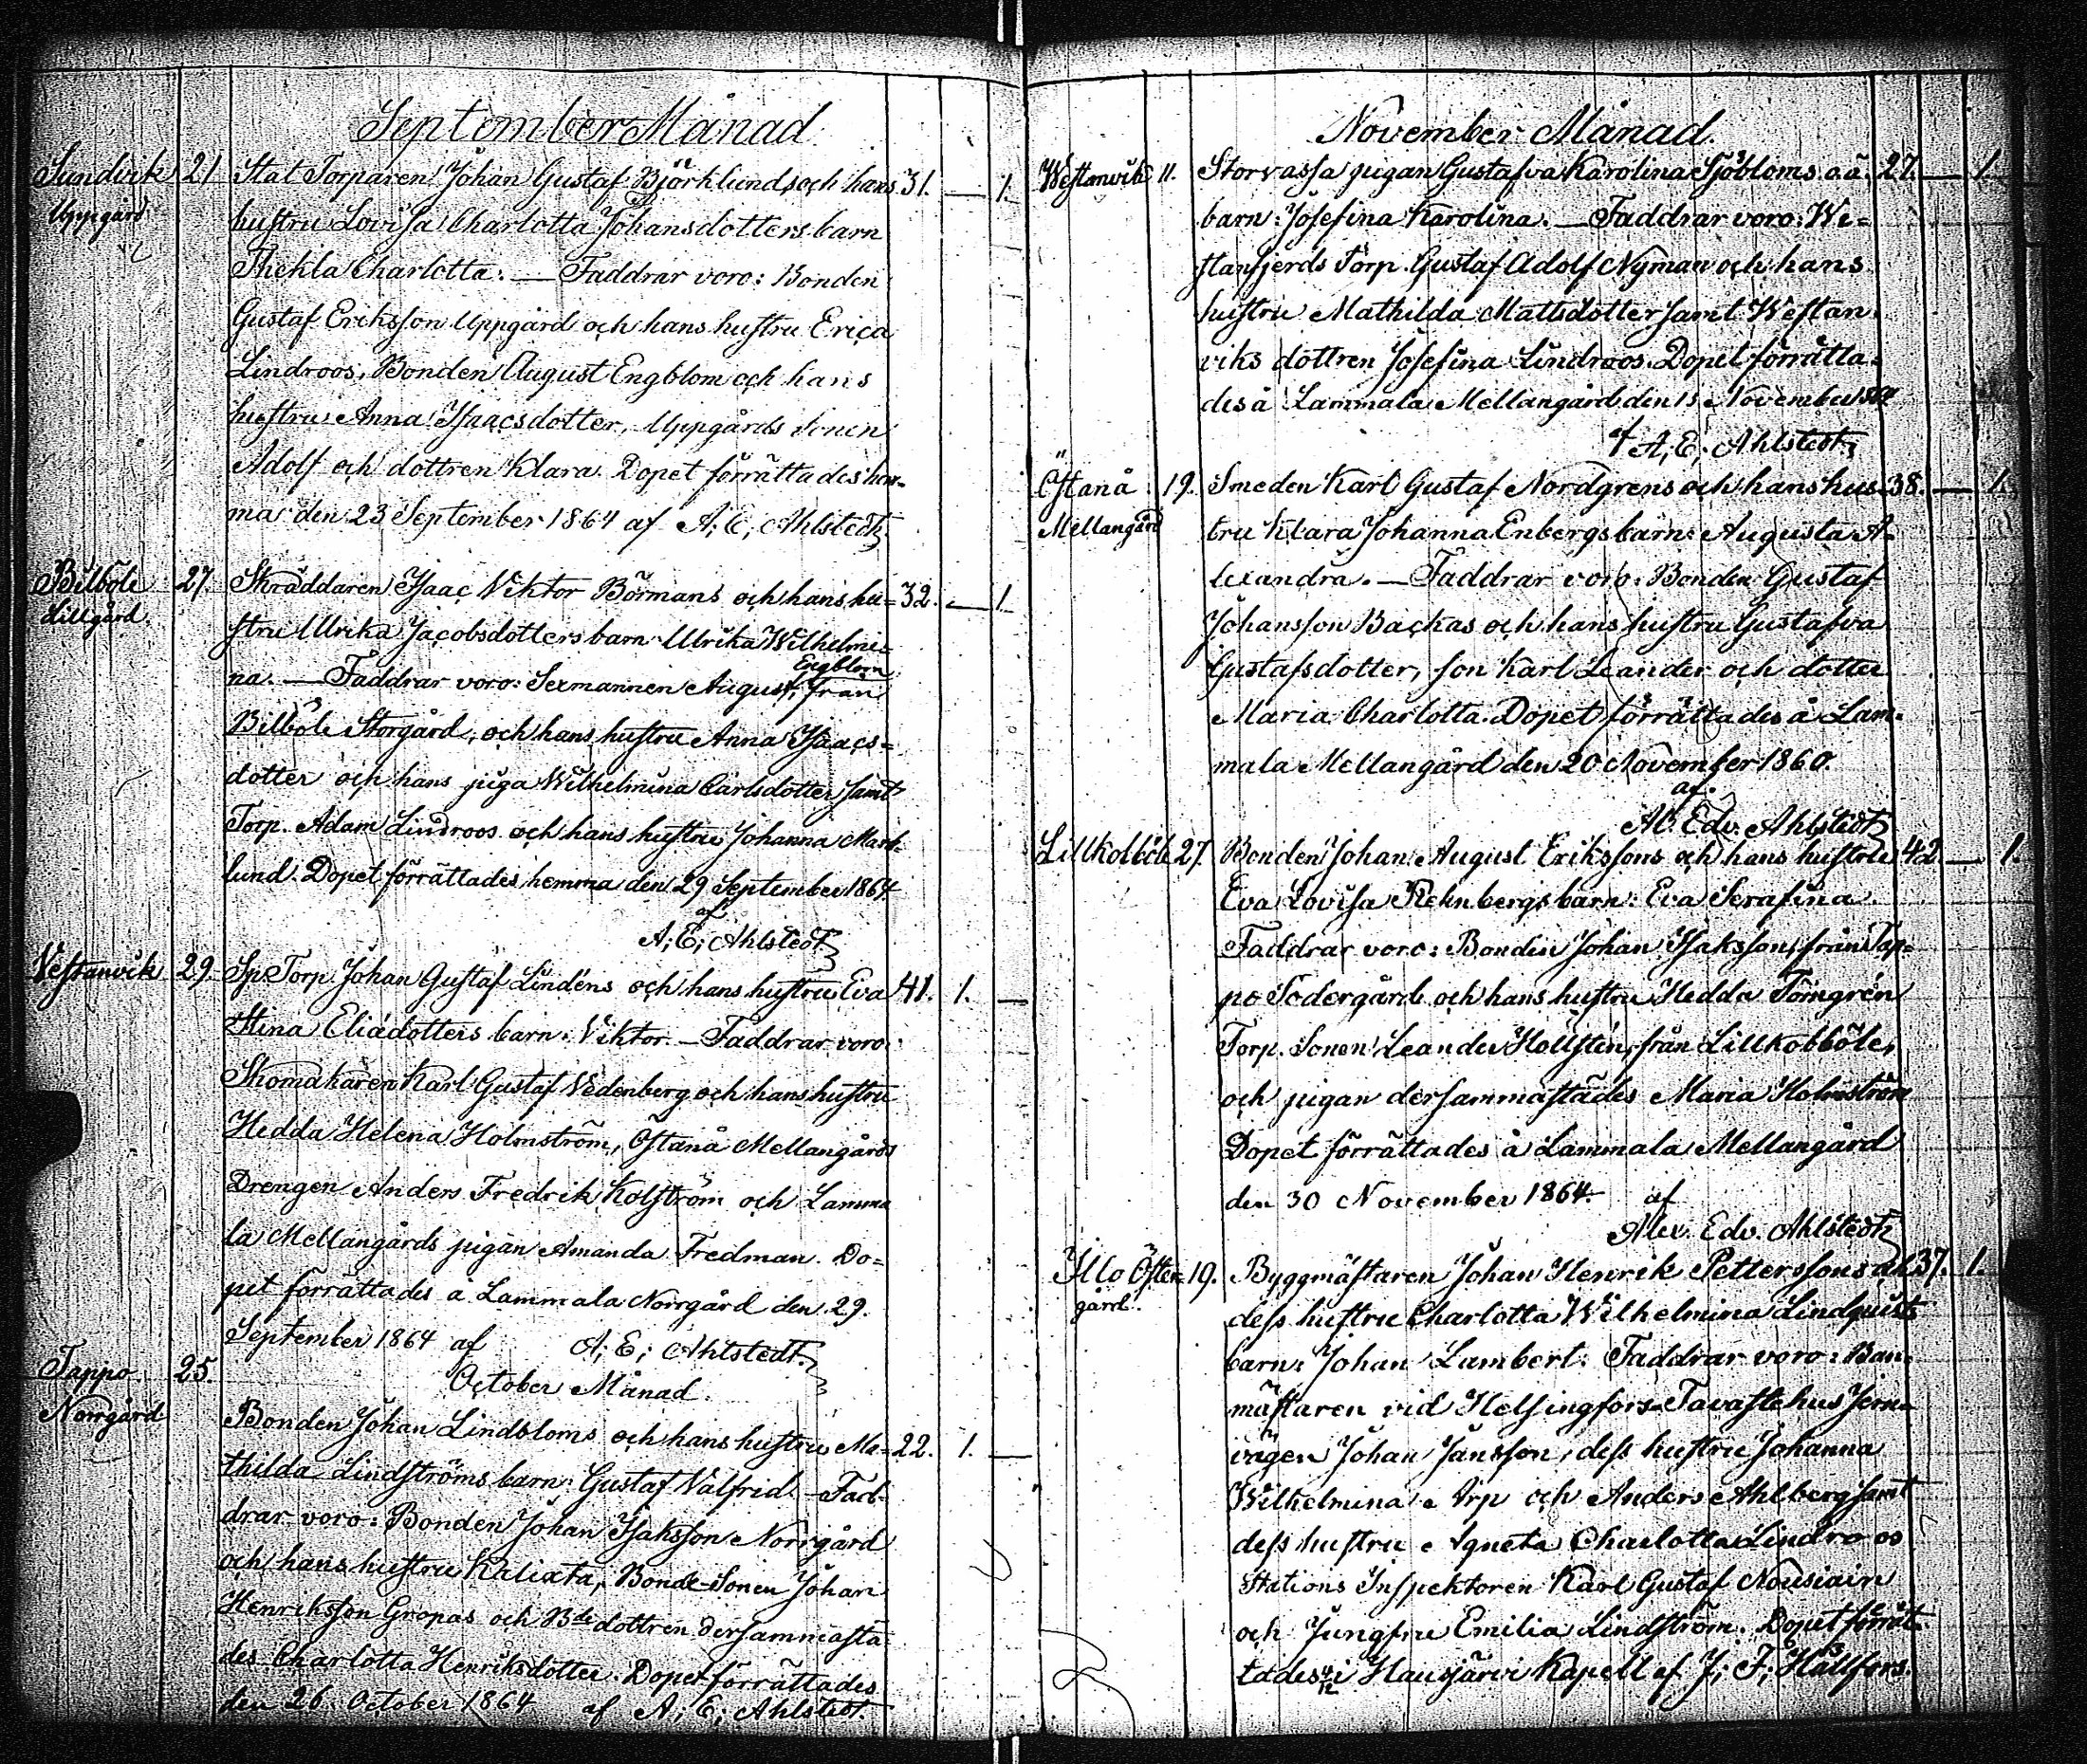 September Månad
Sundvik 21 Stat Torparen Johan Gustaf Björklunds och hans 31. — 1.
Uppgård hustru Lovisa Charlotta Johansdotters barn
Thekla Charlotta. — Faddrar voro: Bonden
Gustaf Eriksson Uppgård och hans hustru Erica
Lindroos, Bonden August Engblom och hans
hustru Anna Isaacsdotter, Uppgårds sonen
Adolf och dottren Klara. Dopet förrättades hem-
ma den 23 September 1864 af A; E; Ahlstedt.
Bilböle 27. Skräddaren Isaac Viktor Börmans och hans hu- 32. — 1.
Lillgård. stru Ulrika Jacobsdotters barn Ulrika Wilhelmi-
Engblom
na. — Faddrar voro: Sexmannen August, från
Bilböle Storgård, och hans hustru Anna Isaacs-
dotter och hans piga Wilhelmina Carlsdotter samt
Torp. Adam Lindroos och hans hustru Johanna Mark-
lund. Dopet förrättades hemma den 29 September 1864
af
A; E; Ahlstedt
Vestanvik 29. Sp Torp Johan Gustaf Lindéns och hans hustru Eva 41. 1. —
Stina Eliädotters barn: Viktor. — Faddrar voro:
Skomakaren Karl Gustaf Vedenberg och hans hustru
Hedda Helena Holmström, Östanå Mellangårds
Drengen Anders Fredrik Kolström och Lamma
la Mellangårds pigan Amanda Fredman. Do-
pet förrättades å Lammala Norrgård den 29.
September 1864 af A; E; Ahlstedt.
October Månad.
Tappo 25.
Norrgård Bonden Johan Lindbloms och hans hustru Ma- 22. 1. —
thilda Lindströms barn: Gustaf Valfrid. — Fad-
drar voro: Bonden Johan Isaksson Norrgård
och hans hustru, Bonde-Sonen Johan
Henriksson Gropas och Bde dottren dersammastä
des Charlotta Henriksdotter. Dopet förrättades
den 26. October 1864 af A; E; Ahlstedt.
November Månad.
Westanvik 11. Storvassa pigan Gustafva Karolina Sjöbloms o.ä. 27. — 1.
barn: Josefina Karolina. — Faddrar voro: We-
stanfjerds Torp. Gustaf Adolf Nyman och hans
hustru Mathilda Mattsdotter samt Westan-
viks dottren Josefina Lindroos. Dopet förrätta-
des å Lammala Mellangård den 13 November 1864
af A; E; Ahlstedt.
Östanå 19. Smeden Karl Gustaf Nordgrens och hans hus- 38. — 1.
Mellangård tru Klara Johanna Enbergs barn: Augusta A-
lexandra. — Faddrar voro: Bonden Gustaf
Johansson Backas och hans hustru Gustafva
Gustafsdotter, son Karl Leander och dotter
Maria Charlotta. Dopet förrättades å Lam-
mala Mellangård den 20 November 1860.
af.
Al. Edv. Ahlstedt
Lillkolböle 27. Bonden Johan August Erikssons och hans hustru 42. — 1.
Eva Lovisa Rehnbergs barn: Eva Serafina.
Faddrar voro: Bonden Johan Isaksson från Tap-
po Södergård och hans hustru Hedda Törngrén
Torp. Sonen Leander Hollstén, från Lillkobböle,
och pigan dersammastädes Maria Holmström
Dopet förrättades å Lammala Mellangård
den 30 November 1864 af
Alex. Edv. Ahlstedt
Illo Öster- 19. Byggmästaren Johan Henrik Petterssons och 37. 1.
gård. dess hustru Charlotta Wilhelmina Lindquists
barn: Johan Lambert. Faddrar voro: Ban-
mästaren vid Helsingfors-Tavastehus Jern-
vägen Johan Jansson, dess hustru Johanna
Wilhelmina Arp och Anders Ahlberg samt
dess hustru Agneta Charlotta Lindroos
Stations Inspektoren Karl Gustaf Nousiain
och Jungfru Emilia Lindström. Dopet förrät-
tades 4/12 i Hausjärvi Kapell af J; F; Hällfors.